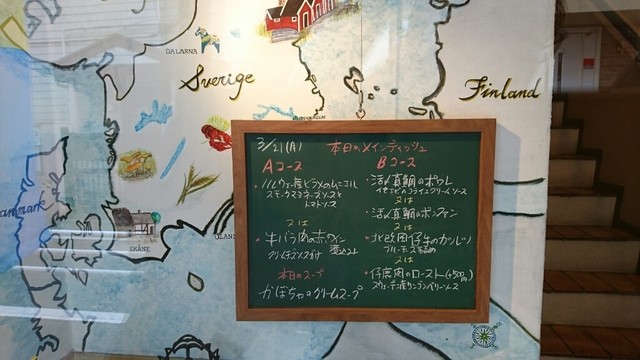 DALARNA
Sverige
Finland
Danmark
SKÅNE
3/21(月) 本日のメインディッシュ
Aコース
・ノルウェー産ヒラメのムニエル
スモークサーモンソースと
トマトソース
又は
・牛バラ肉の赤ワイン煮込み
クリームチーズ
本日のスープ
かぼちゃのクリームスープ
Bコース
・活〆真鯛のポワレ
イセエビのクリームソース
又は
・活〆真鯛のポンファン
又は
・北欧風仔牛のカツレツ
ブルーチーズ
又は
・仔鹿肉のロースト(+500円)
スウェーデン産リンゴンベリーソース